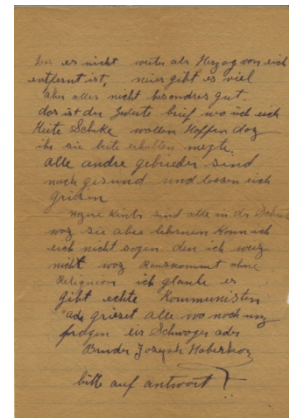 wo er nicht weite als Herzog von eich
entfernt ist, neier gibt es viel
aber alles nicht besondres gut.
das ist der Zweite brief wo ich eich
Heite Schike wollen Hoffen daz
ihr sie bite erhalten megte.
alle andre gebrieder sind
noch gesund und lossen eich
griesen
Unzere Kinder sind alle in der Schule
woz sie aber lehrnen Konn ich
eich nicht sogen den ich weiz
nicht woz Rauskommt ohne
Religieon ich glaube es
gibt echte Kommunisten
ade griezet alle wo noch unz
frogen eir Schwoger oder
Bruder Joseph Haberkorn
bitte auf antwort